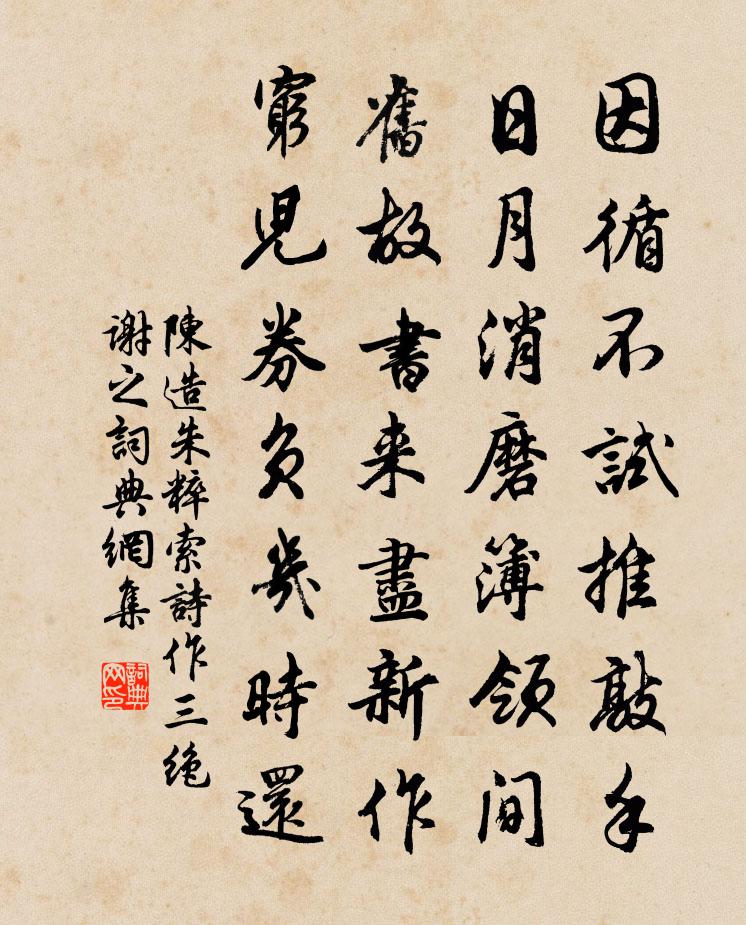 因循不試推敲手
日月消磨簿領間
舊故書来盡新作
窮兒券負幾時還
陳造朱粹索詩作三絶
謝之詞典網集
詞典
网印